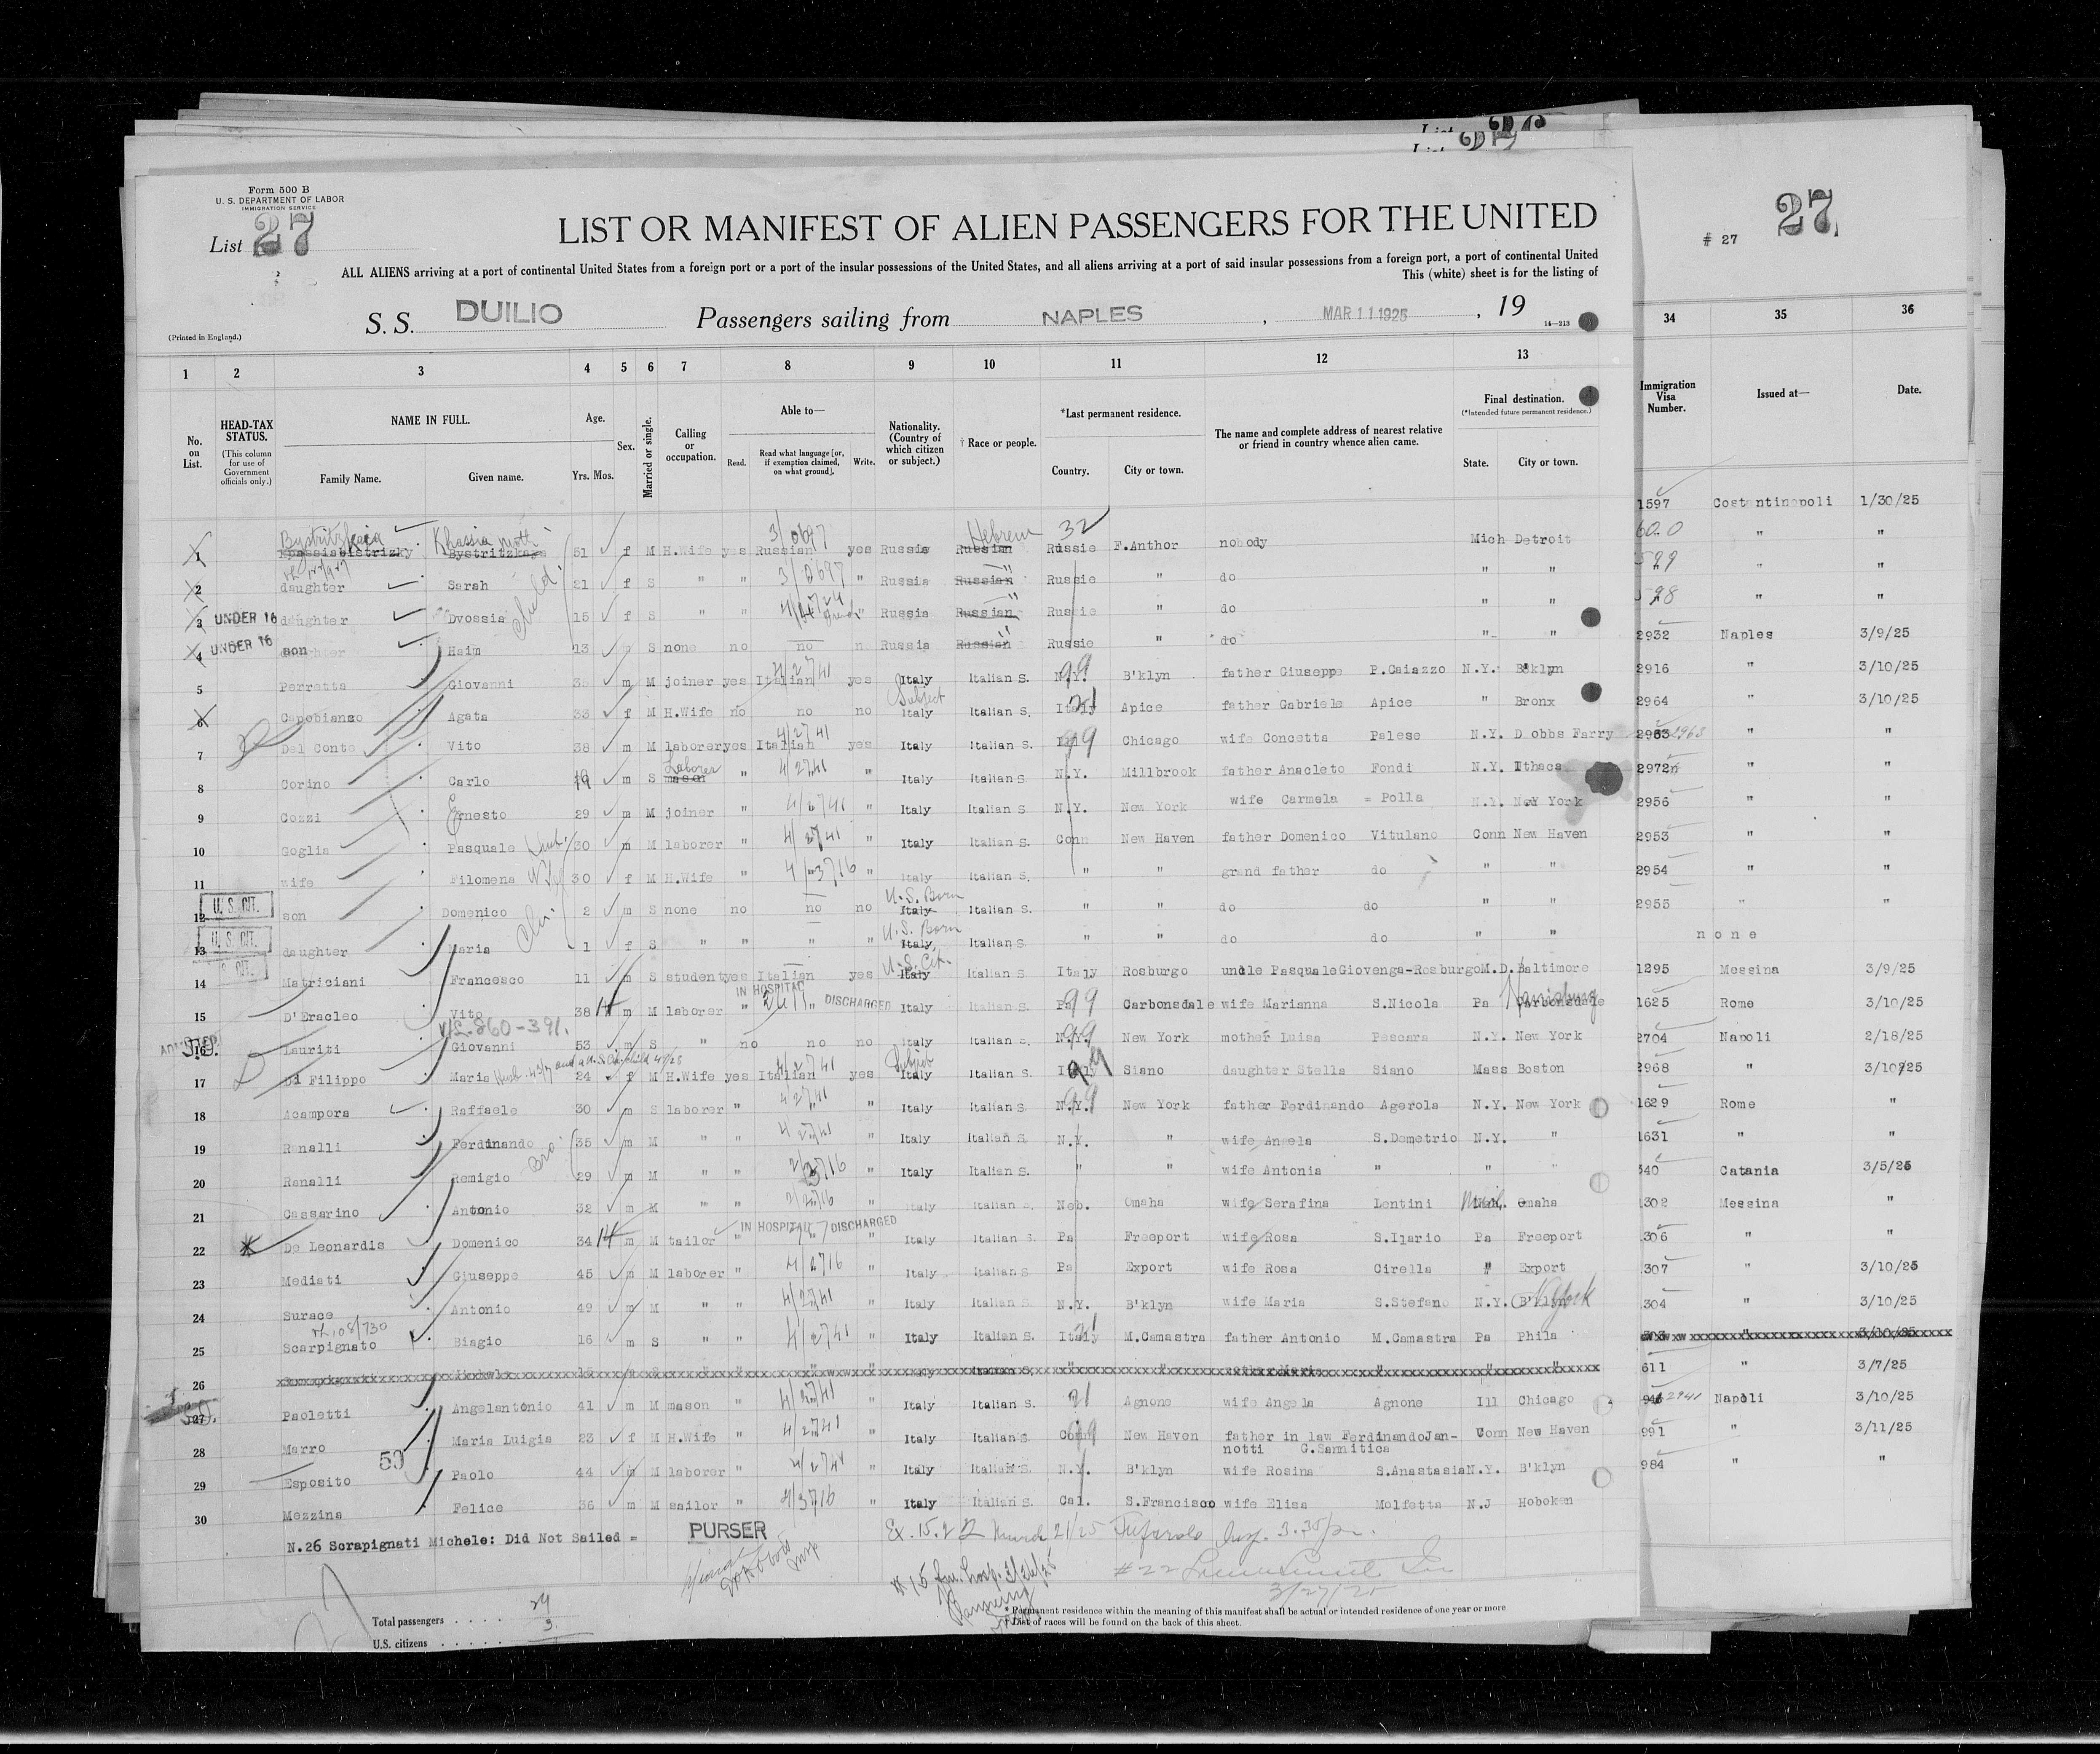 Form 500 B
U. S. DEPARTMENT OF LABOR
IMMIGRATION SERVICE
List 27
LIST OR MANIFEST OF ALIEN PASSENGERS FOR THE UNITED
ALL ALIENS arriving at a port of continental United States from a foreign port or a port of the insular possessions of the United States, and all aliens arriving at a port of said insular possessions from a foreign port, a port of continental United
This (white) sheet is for the listing of
S. S. DUILIO Passengers sailing from NAPLES , MAR 11 1925 , 19
(Printed in England.) 14—213
# 27 27
1 2 3 4 5 6 7 8 9 10 11 12 13 34 35 36
No. on List. HEAD-TAX STATUS. (This column for use of Government officials only.) NAME IN FULL. Family Name. Given name. Age. Yrs. Mos. Sex. Married or single. Calling or occupation. Able to— Read. Read what language [or, if exemption claimed, on what ground]. Write. Nationality. (Country of which citizen or subject.) † Race or people. *Last permanent residence. Country. City or town. The name and complete address of nearest relative or friend in country whence alien came. Final destination. (*Intended future permanent residence.) State. City or town. Immigration Visa Number. Issued at— Date.
1597 Costantinopoli 1/30/25
1 Bystritzkaia Khassia moth Bystritzkaya 51 f M H.Wife yes Russian yes Russia Hebrew Russian Russie F.Anthor nobody Mich Detroit 600 " "
2 daughter Sarah 21 f S " " 3/2697 " Russia Russian " Russie " do " " 599 " "
3 UNDER 16 daughter Dvossia 15 f S " " " Russia Russian " Russie " do " " 598 " "
4 UNDER 16 son Haim 13 S none no no no Russia Russian " Russie " do " " 2932 Naples 3/9/25
5 Perretta Giovanni 35 m M joiner yes Italian 4/2741 yes Italy Italian S. N.Y. 99 B'klyn father Giuseppe P.Caiazzo N.Y. B'klyn 2916 " 3/10/25
6 Capobianco Agata 33 f M H.Wife no no no Subject Italy Italian S. Italy 21 Apice father Gabriele Apice " Bronx 2964 " 3/10/25
7 Del Conte Vito 38 m M laborer yes Italian 4/2741 yes Italy Italian S. Ill 99 Chicago wife Concetta Palese N.Y. Dobbs Farry 2963 2963 " "
8 Corino Carlo 19 m S Laborer mason " 4/2741 " Italy Italian S N.Y. Millbrook father Anacleto Fondi N.Y. Ithaca 2972 " "
9 Cozzi Ernesto 29 m M joiner " 4/2741 " Italy Italian S. N.Y. New York wife Carmela = Polla N.Y. New York 2956 " "
10 Goglia Pasquale Husb. 30 m M laborer " 4/2741 " Italy Italian S. Conn New Haven father Domenico Vitulano Conn New Haven 2953 " "
11 wife Filomena Wife 30 f M H.Wife " 4/3716 " Italy Italian S. " " grand father do " " 2954 " "
12 U. S. CIT. son Domenico 2 m S none no no no U.S. Born Italy Italian S. " " do do " " 2955 " "
13 U. S. CIT. daughter Maria 1 f S " " " " U.S. Born Italy Italian S. " " do do " " none
14 CIT. Matriciani Francesco 11 m S student yes Italian yes U.S. Cit. Italy Italian S Italy Rosburgo uncle Pasquale Giovenga-Rosburgo M.D. Baltimore 1295 Messina 3/9/25
15 D'Eracleo Vito 38 m M laborer " IN HOSPITAL DISCHARGED Italy Italian S. Pa 99 Carbonsdale wife Marianna S.Nicola Pa Carbonsdale 1625 Rome 3/10/25
16 ADMITTED V/L-860-391. Lauriti Giovanni 53 m S " no no no Italy Italian S. N.Y. 99 New York mother Luisa Pescara N.Y. New York 2704 Napoli 2/18/25
17 Di Filippo Maria 24 f M H.Wife yes Italian 4/2741 yes Subject Italy Italian S. Italy Siano daughter Stella Siano Mass Boston 2968 " 3/10/25
18 Acampora Raffaele 30 m S laborer " 42741 " Italy Italian S. N.Y. 99 New York father Ferdinando Agerola N.Y. New York 1629 Rome "
19 Ranalli Ferdinando 35 m M " " 4 2741 " Italy Italian S. N.Y. " wife Angela S.Demetrio N.Y. " 1631 " "
20 Ranalli Remigio Bro 29 m M " " " Italy Italian S. " " wife Antonia " " " 340 Catania 3/5/25
21 Cassarino Antonio 32 m M " " " Italy Italian S. Neb. Omaha wife Serafina Lentini Omaha 302 Messina "
22 De Leonardis Domenico 34 m M tailor " IN HOSPITAL DISCHARGED " Italy Italian S. Pa Freeport wife Rosa S.Ilario Pa Freeport 306 " "
23 Mediati Giuseppe 45 m M laborer " 4/2716 " Italy Italian S Pa Export wife Rosa Cirella " Export 307 " 3/10/25
24 Surace Antonio 49 m M " " 4/2741 " Italy Italian S N.Y. B'klyn wife Maria S.Stefano N.Y. B'klyn N York 304 " 3/10/25
25 Scarpignato Biagio 16 m S " " 4/2741 " Italy Italian S. Italy 21 M.Camastra father Antonio M.Camastra Pa Phila 3/10/25
26 611 " 3/7/25
27 Paoletti Angelantonio 41 m M mason " 4/2741 " Italy Italian S. 21 Agnone wife Angela Agnone Ill Chicago 2941 Napoli 3/10/25
28 Marro Maria Luigia 23 f M H.Wife " 4/2741 " Italy Italian S. Conn 99 New Haven father in law Ferdinando Jan- Conn New Haven 991 " 3/11/25
notti G.Sannitica
29 50 Esposito Paolo 44 m M laborer " 4/2741 " Italy Italian S. N.Y. B'klyn wife Rosina S.Anastasia N.Y. B'klyn 984 " "
30 Mezzina Felice 36 m M sailor " 4/3716 " Italy Italian S. Cal. S.Francisco wife Elisa Molfetta N.J Hoboken
N.26 Scrapignati Michele: Did Not Sailed =
PURSER
March 21/25 Insp. 3.35 pm.
#22 3/27/25
Total passengers . . . . 29
U.S. citizens . . . . . 3
* Permanent residence within the meaning of this manifest shall be actual or intended residence of one year or more
† List of races will be found on the back of this sheet.